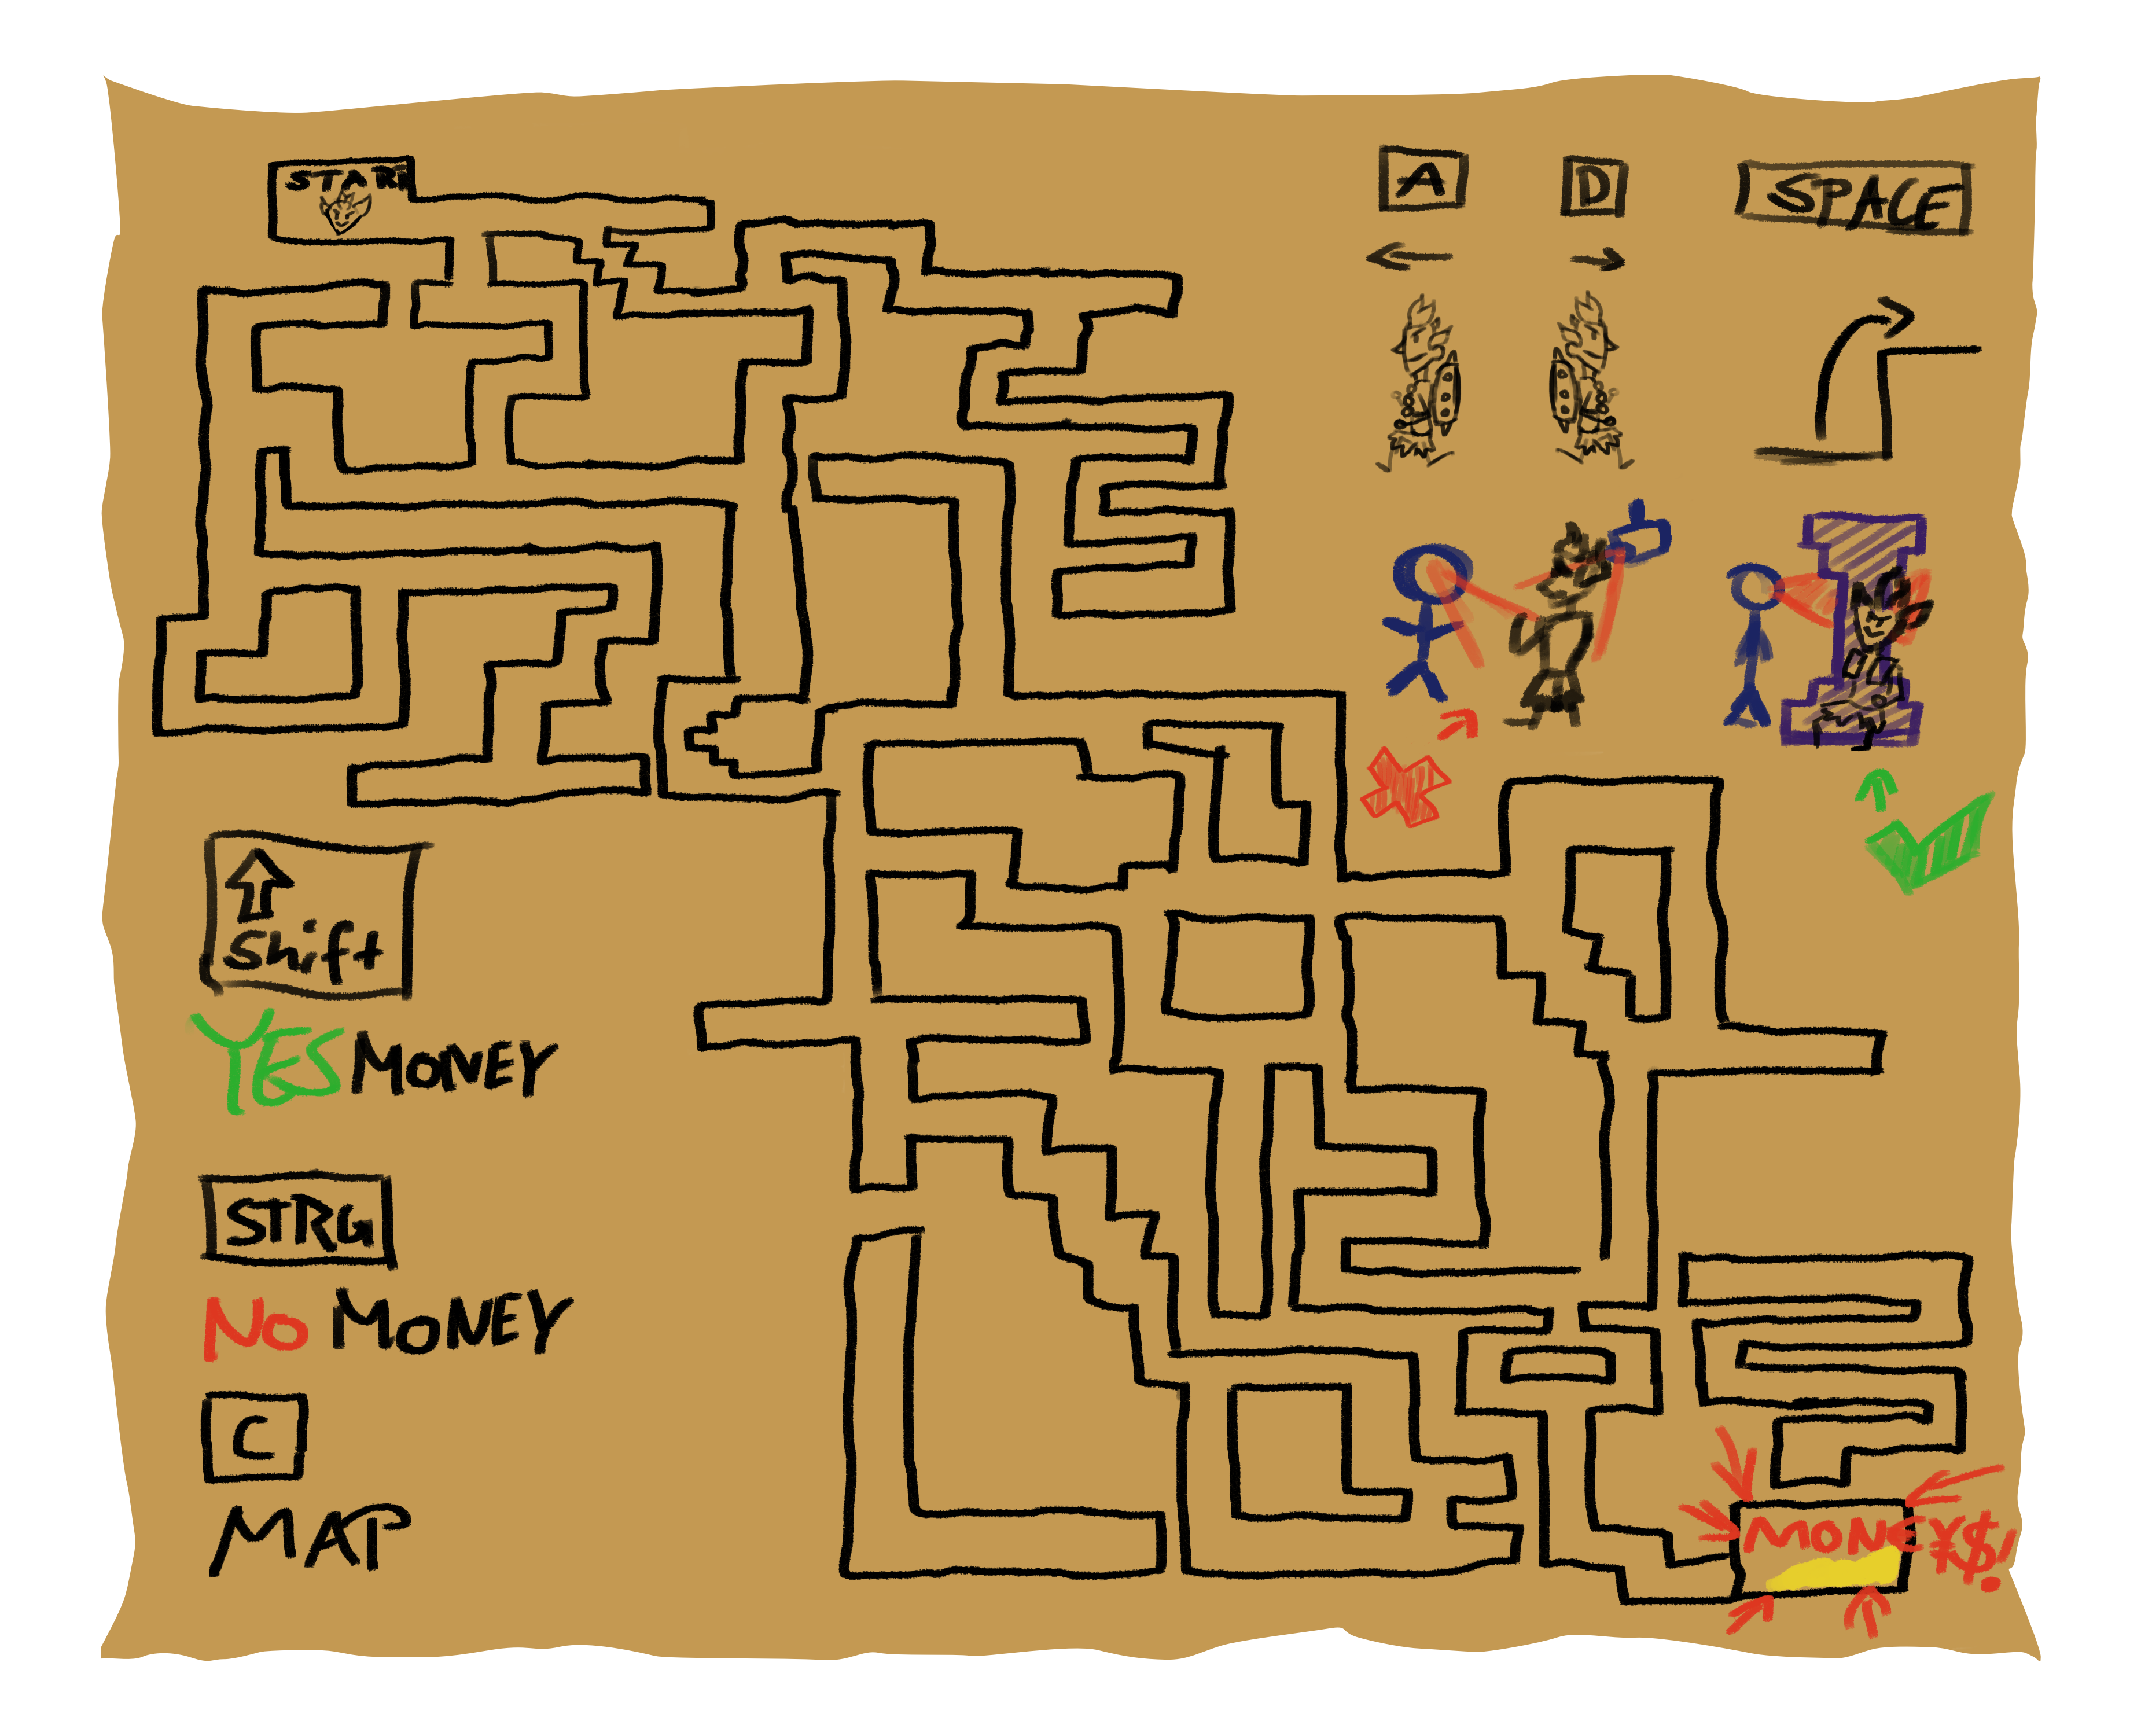 START
A
D
SPACE
Shift
YES MONEY
STRG
NO MONEY
C
MAP
MONEY$!